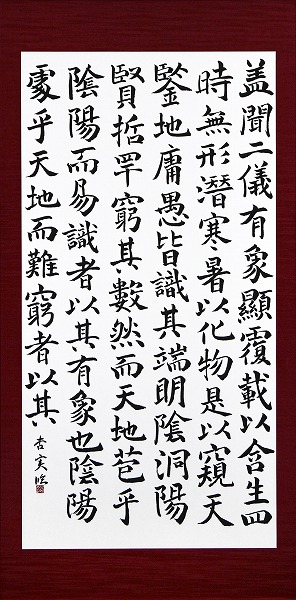 盖聞二儀有象顯覆載以含生四
時無形潛寒暑以化物是以窺天
鑒地庸愚皆識其端明陰洞陽
賢哲罕窮其數然而天地苞乎
陰陽而易識者以其有象也陰陽
處乎天地而難窮者以其
杏実臨